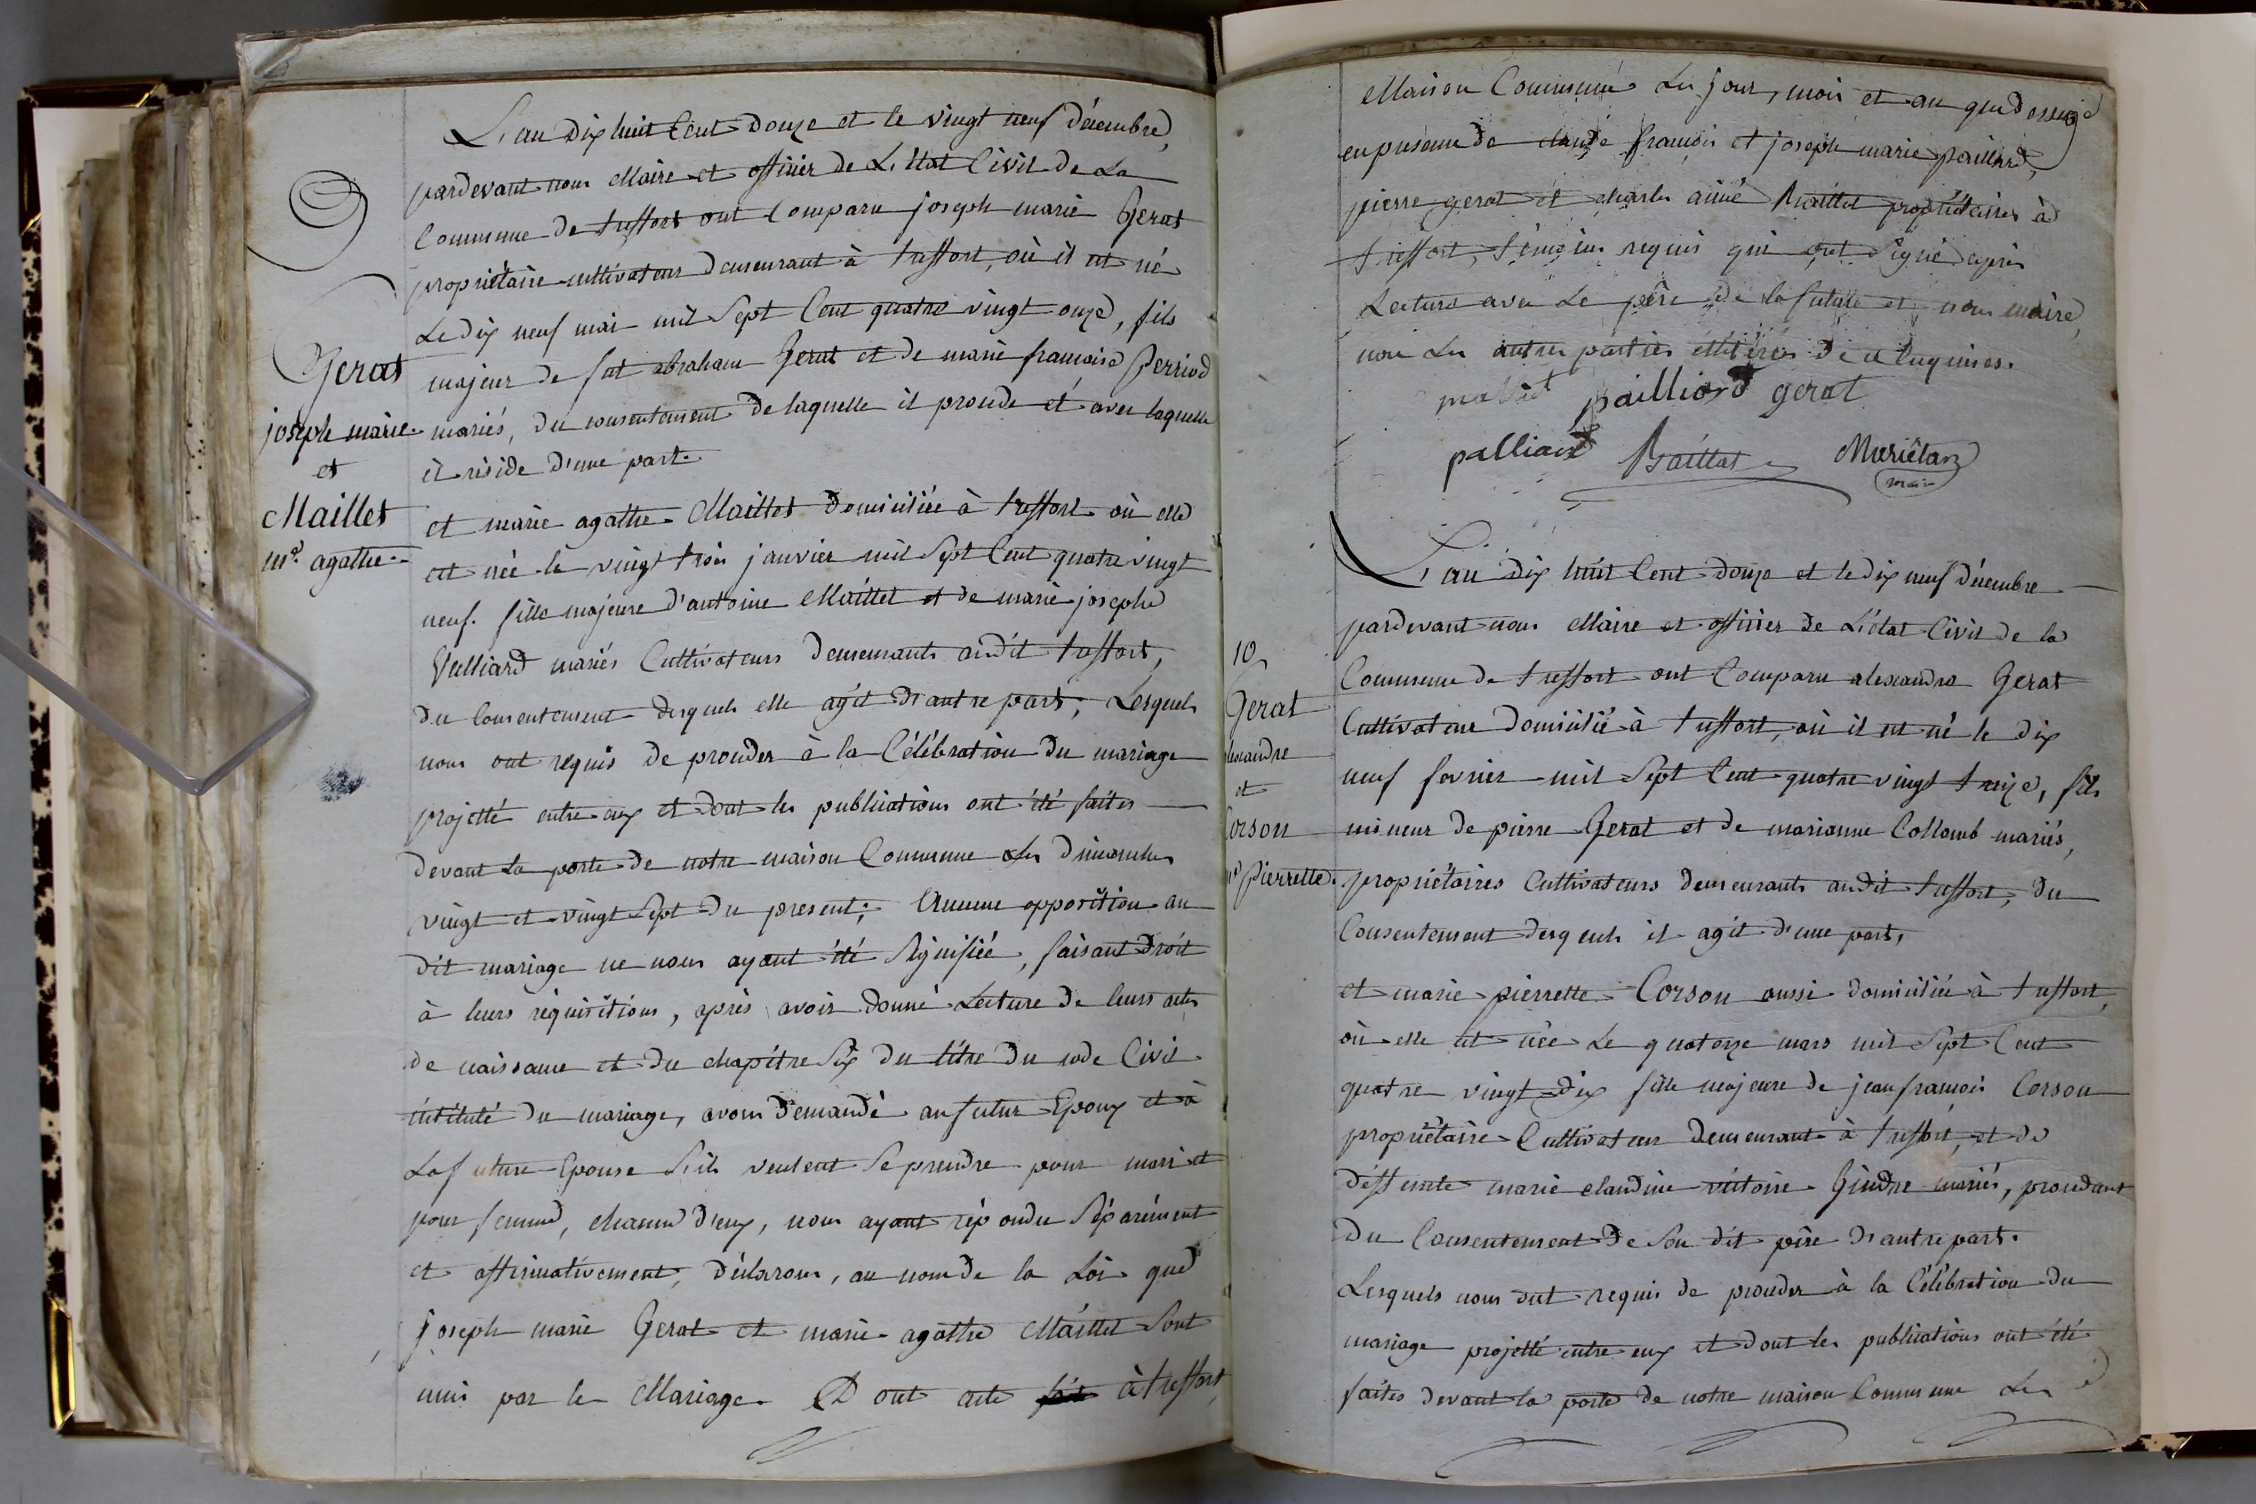 L'an dix huit Cent douze et le vingt neuf décembre,
pardevant nous Maire et officier de L'état Civil de La
Commune de treffort ont Comparu joseph marie Gerat
propriétaire cultivateur demeurant à treffort, où il est né
Le dix neuf mai mil Sept Cent quatre vingt onze, fils
majeur de fut abraham Gerat et de marie francoise Perriod
mariés, du consentement de laquelle il procède et avec laquelle
il réside d'une part.
Gerat
joseph marie
et
Maillet
me. agathe
et marie agathe Maillet Domiciliée à treffort où elle
est née le vingt trois janvier mil Sept Cent quatre vingt
neuf. fille majeure d'antoine Maillet et de marie josephe
Vulliard mariés Cultivateurs demeurants audit treffort,
du Consentement desquels elle agit d'autre part; Lesquels
nous ont requis de procéder à la Célébration du mariage
projetté entre eux et dont les publications ont été faites
devant La porte de notre maison Commune Les dimanches
vingt et vingt Sept du present; Aucune opposition au
dit mariage ne nous ayant été Signifiée, faisant droit
à leurs réquisitions, après avoir donné Lecture de leurs actes
de naissance et du chapitre Six du titre du code Civil
intitulé du mariage, avons demandé au futur Epoux et à
La future Epouse S'ils veulent Se prendre pour mari et
pour femme, chacun d'eux, nous ayant répondu Séparément
et affirmativement, déclarons, au nom de la Loi que
joseph marie Gerat et marie agathe Maillet Sont
unis par le Mariage. Dont acte à treffort,
Maison Commune Les jour, mois et an que dessus
en présence de claude françois et joseph marie paillard,
pierre gerat et charles aimé Raillat propriétaires à
treffort, témoins requis qui ont Signé après
Lecture avec Le père de la future et nous maire,
non Les autres parties de ce enquises.
pailliard gerat
palliard Raillat Muriêtan
maire
L'an dix huit Cent douze et le dix neuf décembre
pardevant nous Maire et officier de L'état Civil de la
Commune de treffort ont Comparu alexandre Gerat
Cultivateur domicilié à treffort, où il est né le dix
neuf fevrier mil Sept Cent quatre vingt treize, fils
mineur de pierre Gerat et de marianne Collomb mariés,
propriétaires Cultivateurs demeurants audit treffort, du
Consentement desquels il agit d'une part,
10
Gerat
lexandre
et
Corson
Pierrette.
et marie pierrette Corson aussi domiciliée à treffort,
où elle est née Le quatorze mars mil Sept Cent
quatre vingt dix fille majeure de jean francois Corson
propriétaire Cultivateur demeurant à treffort, et de
deffunte marie claudine victoire Gindre mariés, procédant
du Consentement de Son dit père d'autre part.
Lesquels nous ont requis de procéder à la Célébration du
mariage projetté entre eux et dont les publications ont été
faites devant la porte de notre maison Commune Les